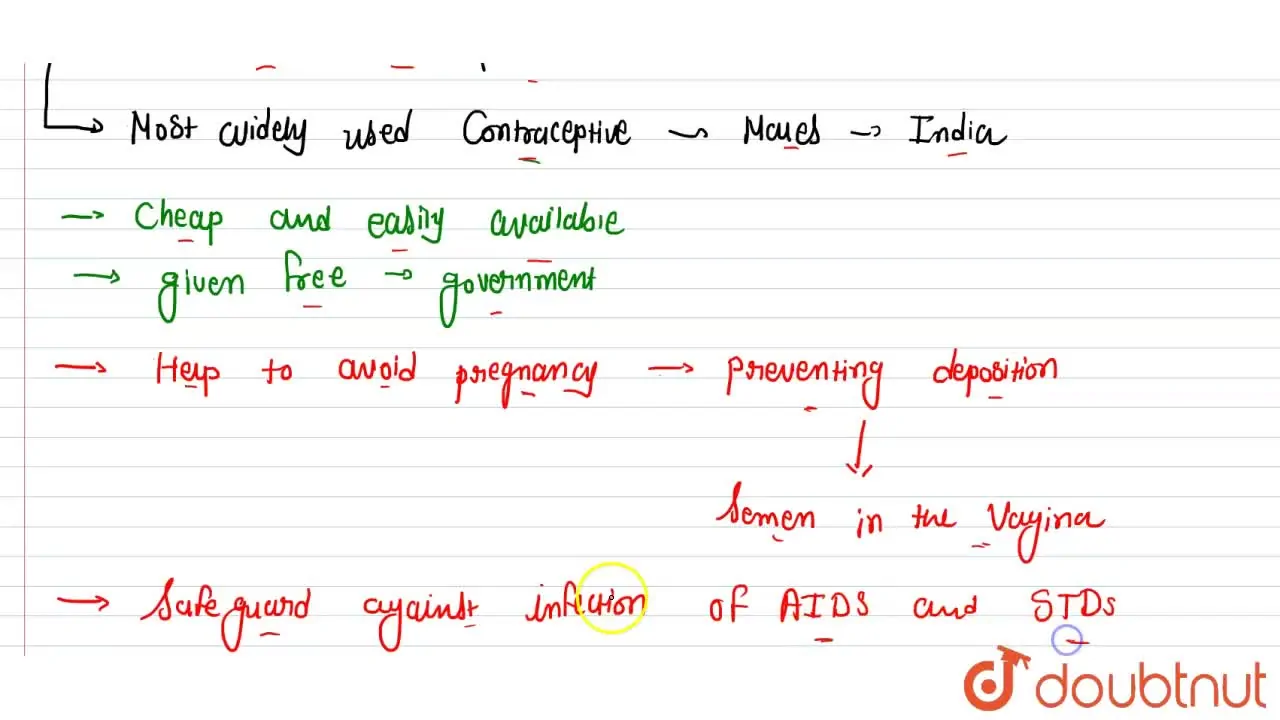 → Most widely used Contraceptive → Males → India
→ Cheap and easily available
→ given free → government
→ Help to avoid pregnancy → Preventing deposition
↓
Semen in the Vagina
→ Safe guard against infection of AIDS and STDs
doubtnut